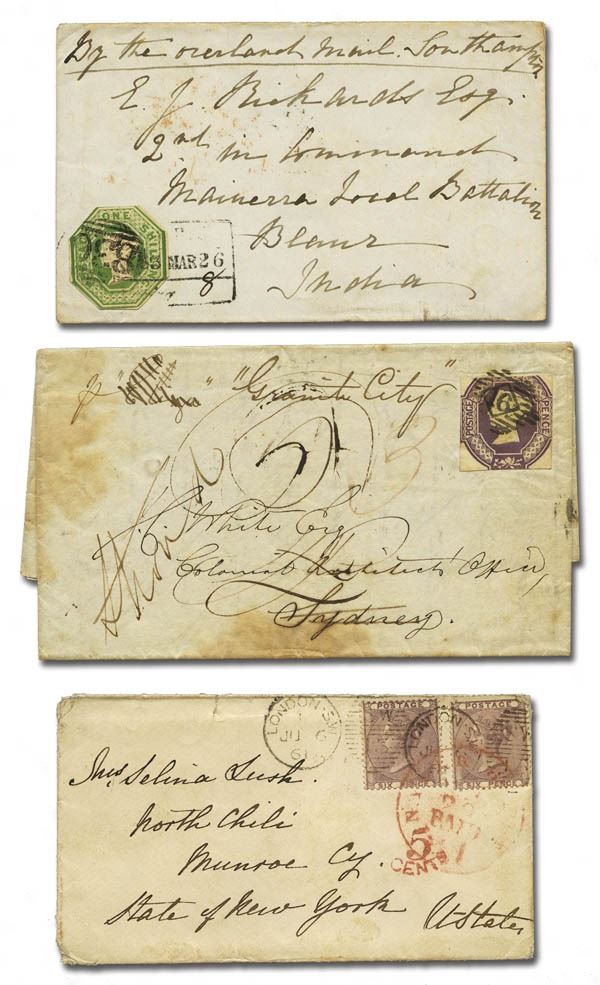 By the overland Mail. Southampton
E. J. Rickards Esq.
2nd in Command
Mairwerra Local Battalion
Beaur
India
ONE SHILLING
MAR 26
8
"Granite City"
POSTAGE
PENCE
3
Short
White Esq
Colonial Architects Office,
Sydney.
LONDON.S.W
JU 6
61
POSTAGE
POSTAGE
SIX PENCE
SIX PENCE
LONDON.S
PAID
5
CENTS
Selina Lush.
North Chili
Munroe Cy.
State of New York
UStates